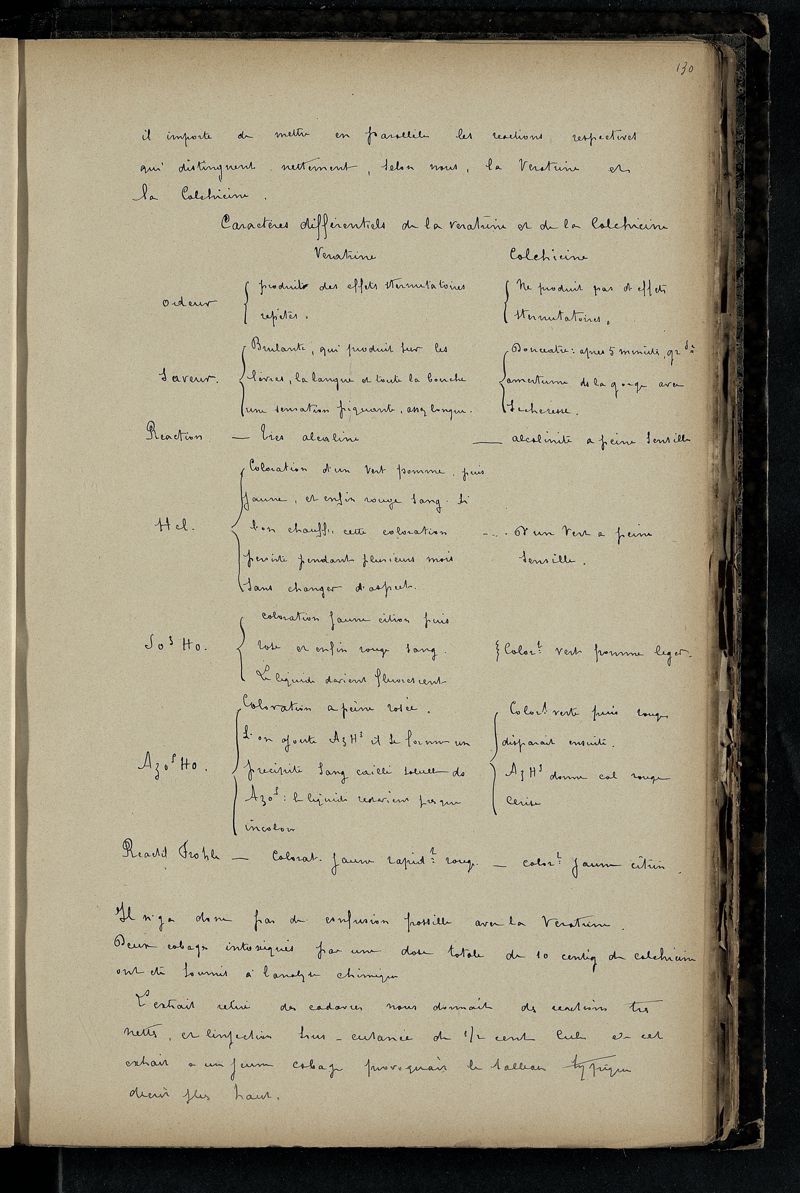 130
il importe de mettre en parallèle les reactions respectives
qui distinguent nettement, selon nous, la Veratrine et
la Colchicine.
Caractères différentiels de la veratrine et de la Colchicine
Veratrine Colchicine
odeur { produit des effets sternutatoires { Ne produit pas d'effets
répétés. sternutatoires.
Saveur. { Brulante, qui produit sur les { Douceatre: apres 5 minutes, gr de
lèvres, la langue et toute la bouche amertume de la gorge avec
une sensation piquante, assez longue. secheresse.
Reaction — Tres alcaline — alcalinité a peine sensible
Hcl. { Coloration d'un vert pomme, puis
jaune, et enfin rouge sang. Si
l'on chauffe, cette coloration ... D'un vert a peine
persiste pendant plusieurs mois sensible.
sans changer d'aspect.
So3 Ho. { coloration jaune citron puis
rose et enfin rouge sang. { Color.t vert pomme leger.
Le liquide devient fluorescent
Azo5 Ho. { Coloration a peine rosée. { Color.t verte puis rouge
Si on ajoute AzH3 il se forme un disparait ensuite.
precipité sang caillé soluble do AzH3 donne col rouge
Azo5: le liquide redevient presque Cerise
incolore
Reactif Frohde — Colorat. jaune rapid.t rouge. — color.t jaune citrin.
Il n'y a donc pas de confusion possible avec la Veratrine.
Deux cobayes intoxiqués par une dose totale de 10 centig de colchicine
ont été soumis à l'analyse chimique
L'extrait retiré des cadavres nous donnait des reactions tres
nettes, et l'injection sous-cutanée de 1/2 cent Cub de cet
extrait a un jeune cobaye provoquait le tableau typique
decrit plus haut.